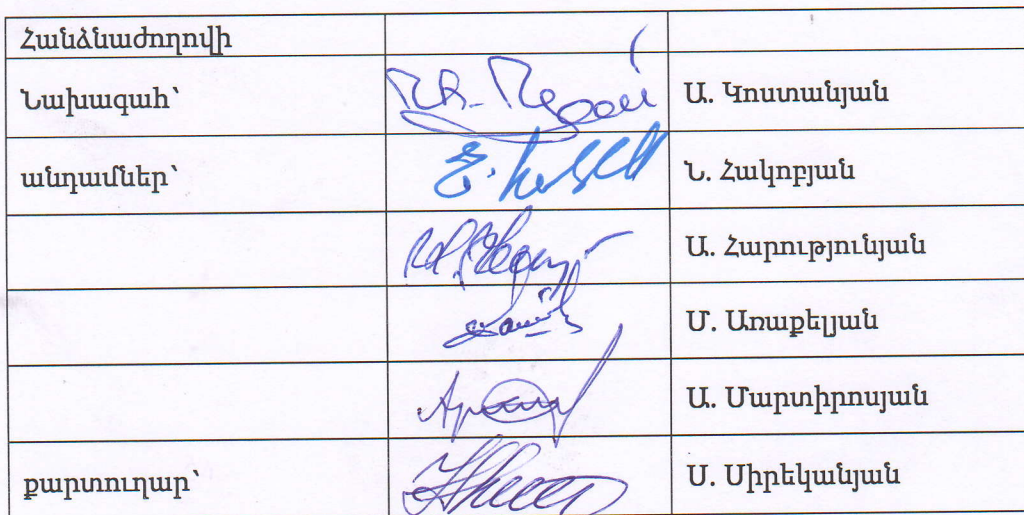 Հանձնաժողովի
Նախագահ՝ Ա. Կոստանյան
անդամներ՝ Ն. Հակոբյան
Ա. Հարությունյան
Մ. Առաքելյան
Ա. Մարտիրոսյան
քարտուղար՝ Ս. Սիրեկանյան